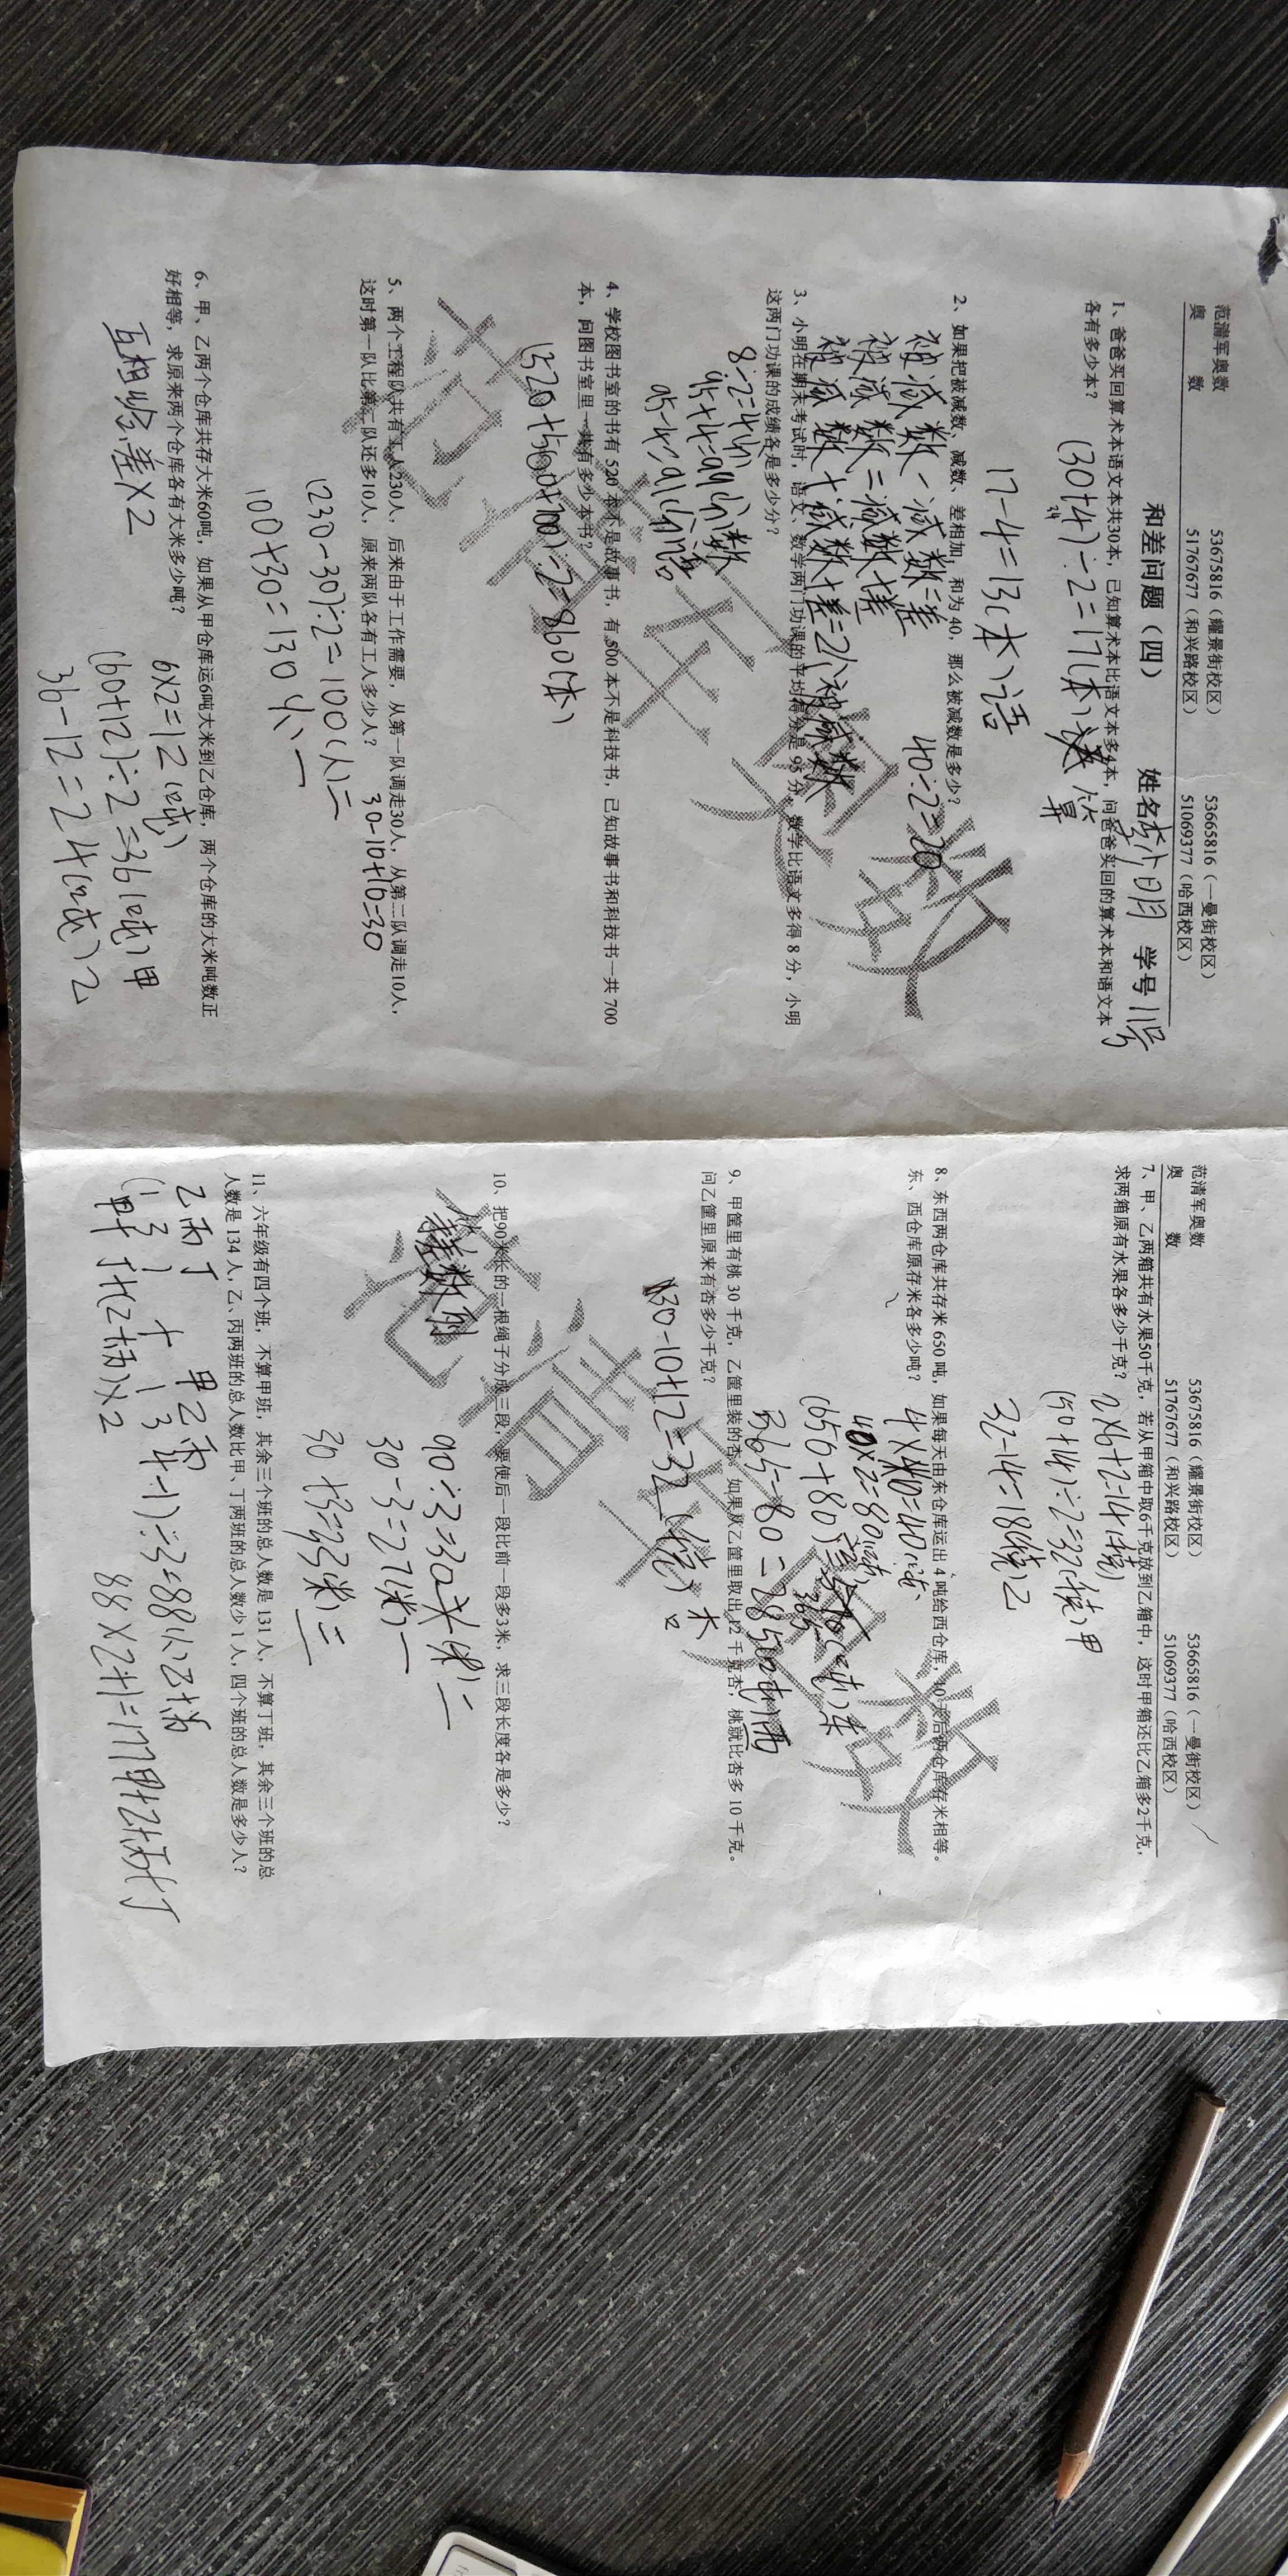 范清军奥数 53675816（耀景街校区） 53665816（一曼街校区）
奥 数 51767677（和兴路校区） 51069377（哈西校区）
和差问题（四） 姓名 学号11号
1、爸爸买回算术本语文本共30本，已知算术本比语文本多4本，问爸爸买回的算术本和语文本
各有多少本？
(30+4)÷2=17(本)
17-4=13(本)语
2、如果把被减数、减数、差相加，和为40，那么被减数是多少？
40÷2=20
被减数-减数=差
被减数=减数+差
被减数+减数+差=2个被减数
3、小明在期末考试时，语文、数学两门功课的平均得分是 95 分，数学比语文多得 8 分，小明
这两门功课的成绩各是多少分？
8÷2=4(分)
95+4=99(分)数
95-4=91(分)语
4、学校图书室的书有 520 本不是故事书，有 500 本不是科技书，已知故事书和科技书一共 700
本，问图书室里一共有多少本书？
(520+500+700)÷2=860(本)
5、两个工程队共有工人230人，后来由于工作需要，从第一队调走30人，从第二队调走10人，
这时第一队比第二队还多10人，原来两队各有工人多少人？
30-10+10=30
(230-30)÷2=100(人)二
100+30=130(人)一
6、甲、乙两个仓库共存大米60吨，如果从甲仓库运6吨大米到乙仓库，两个仓库的大米吨数正
好相等，求原来两个仓库各有大米多少吨？
6×2=12(吨)
互相给差×2
(60+12)÷2=36(吨)甲
36-12=24(吨)乙
范清军奥数 53675816（耀景街校区） 53665816（一曼街校区）
奥 数 51767677（和兴路校区） 51069377（哈西校区）
7、甲、乙两箱共有水果50千克，若从甲箱中取6千克放到乙箱中，这时甲箱还比乙箱多2千克，
求两箱原有水果各多少千克？
2×6+2=14(千克)
(50+14)÷2=32(千克)甲
32-14=18(千克)乙
8、东西两仓库共存米 650 吨，如果每天由东仓库运出 4 吨给西仓库，10 天后两仓库存米相等。
东、西仓库原存米各多少吨？
4×10=40(吨)
40×2=80(吨)
(650+80)÷2=365(吨)东
365-80=285(吨)西
9、甲筐里有桃 30 千克，乙筐里装的杏，如果从乙筐里取出 12 千克杏，桃就比杏多 10 千克。
问乙筐里原来有杏多少千克？
30-10+12=32(千克)杏
10、把90米长的一根绳子分成三段，要使后一段比前一段多3米，求三段长度各是多少？
等差数列
90÷3=30(米)二
30-3=27(米)一
30+3=33(米)三
11、六年级有四个班，不算甲班，其余三个班的总人数是 131 人，不算丁班，其余三个班的总
人数是 134 人，乙、丙两班的总人数比甲、丁两班的总人数少 1 人，四个班的总人数是多少人？
乙丙丁 甲乙丙
(131+134-1)÷3=88(人)乙+丙
甲+丁+(乙+丙)×2
88×2+1=177甲+乙+丙+丁